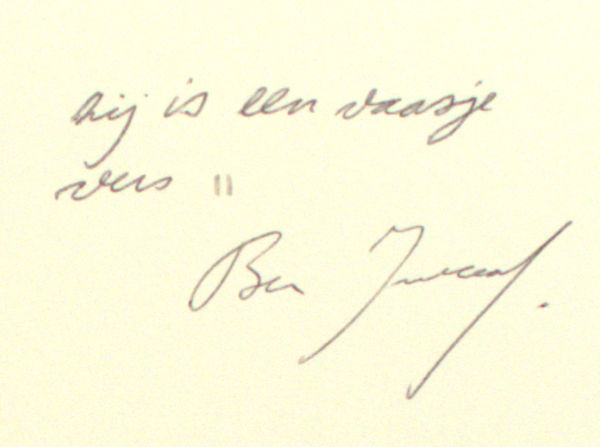 hij is een vaasje
vers "
Ben